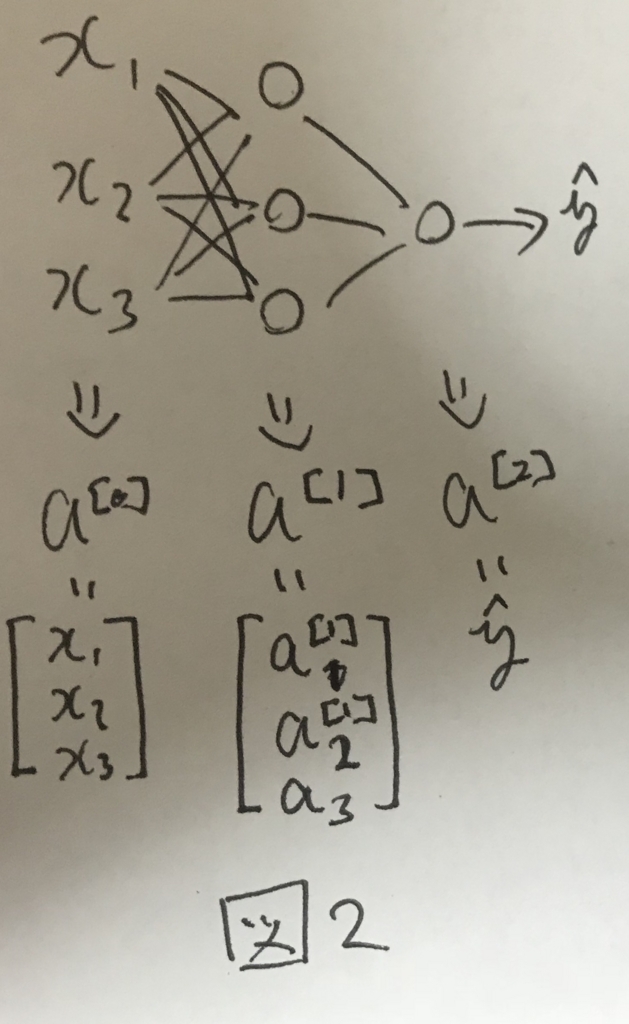 x₁
x₂
x₃
ŷ
⇓ ⇓ ⇓
a^[0] a^[1] a^[2]
= = =
[x₁ x₂ x₃]
[a₁^[1] a₂^[1] a₃]
ŷ
図2